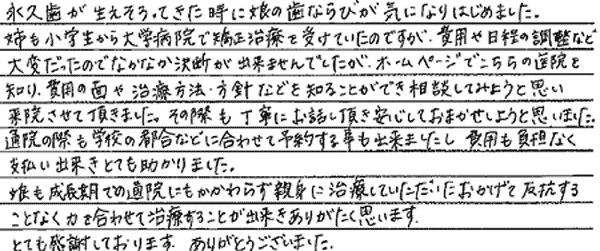 永久歯が生えそろってきた時に娘の歯ならびが気になりはじめました。
姉も小学生から大学病院で矯正治療を受けていたのですが、費用や日程の調整など
大変だったのでなかなか決断が出来ませんでしたが、ホームページでこちらの医院を
知り、費用の面や治療方法・方針などを知ることができ相談してみようと思い
来院させて頂きました。その際も丁寧にお話し頂き安心しておまかせしようと思いました。
通院の際も学校の都合などに合わせて予約する事も出来ましたし 費用も負担なく
支払い出来きとても助かりました。
娘も成長期での通院にもかかわらず親身に治療していただいたおかげで反抗する
ことなく力を合わせて治療することが出来きありがたく思います。
とても感謝しております。ありがとうございました。